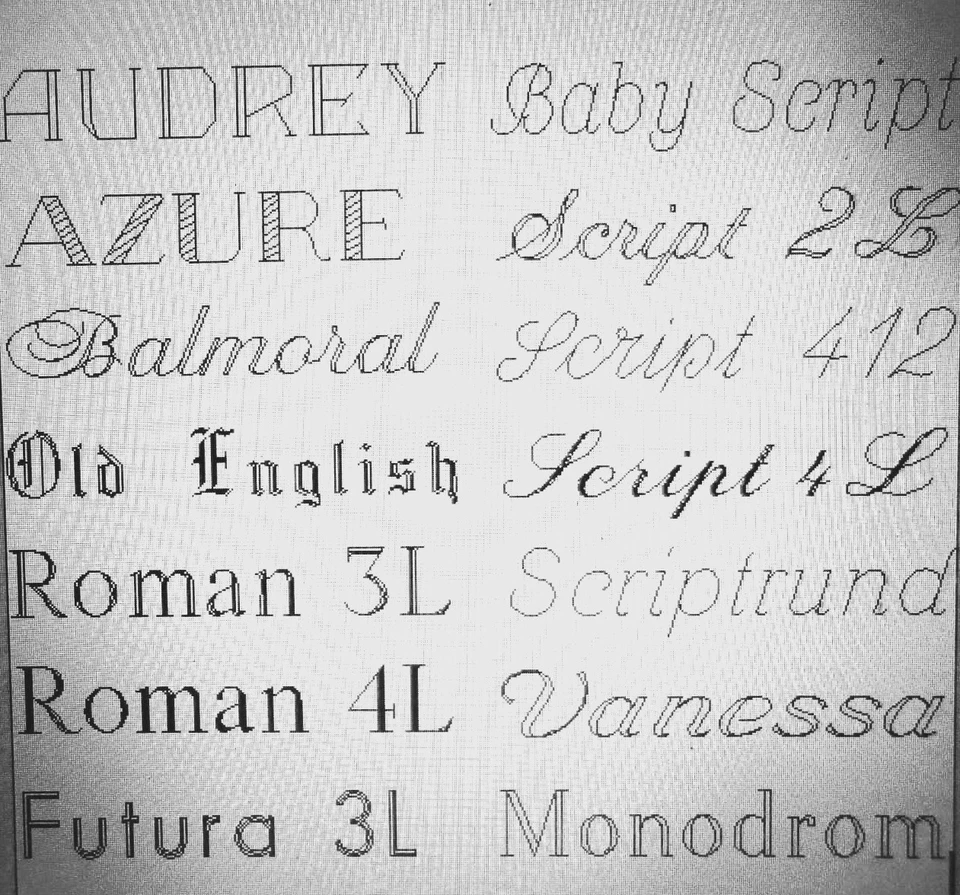 AUDREY Baby Script
AZURE Script 2L
Balmoral Script 412
Old English Script 4L
Roman 3L Scriptrund
Roman 4L Vanessa
Futura 3L Monodrom